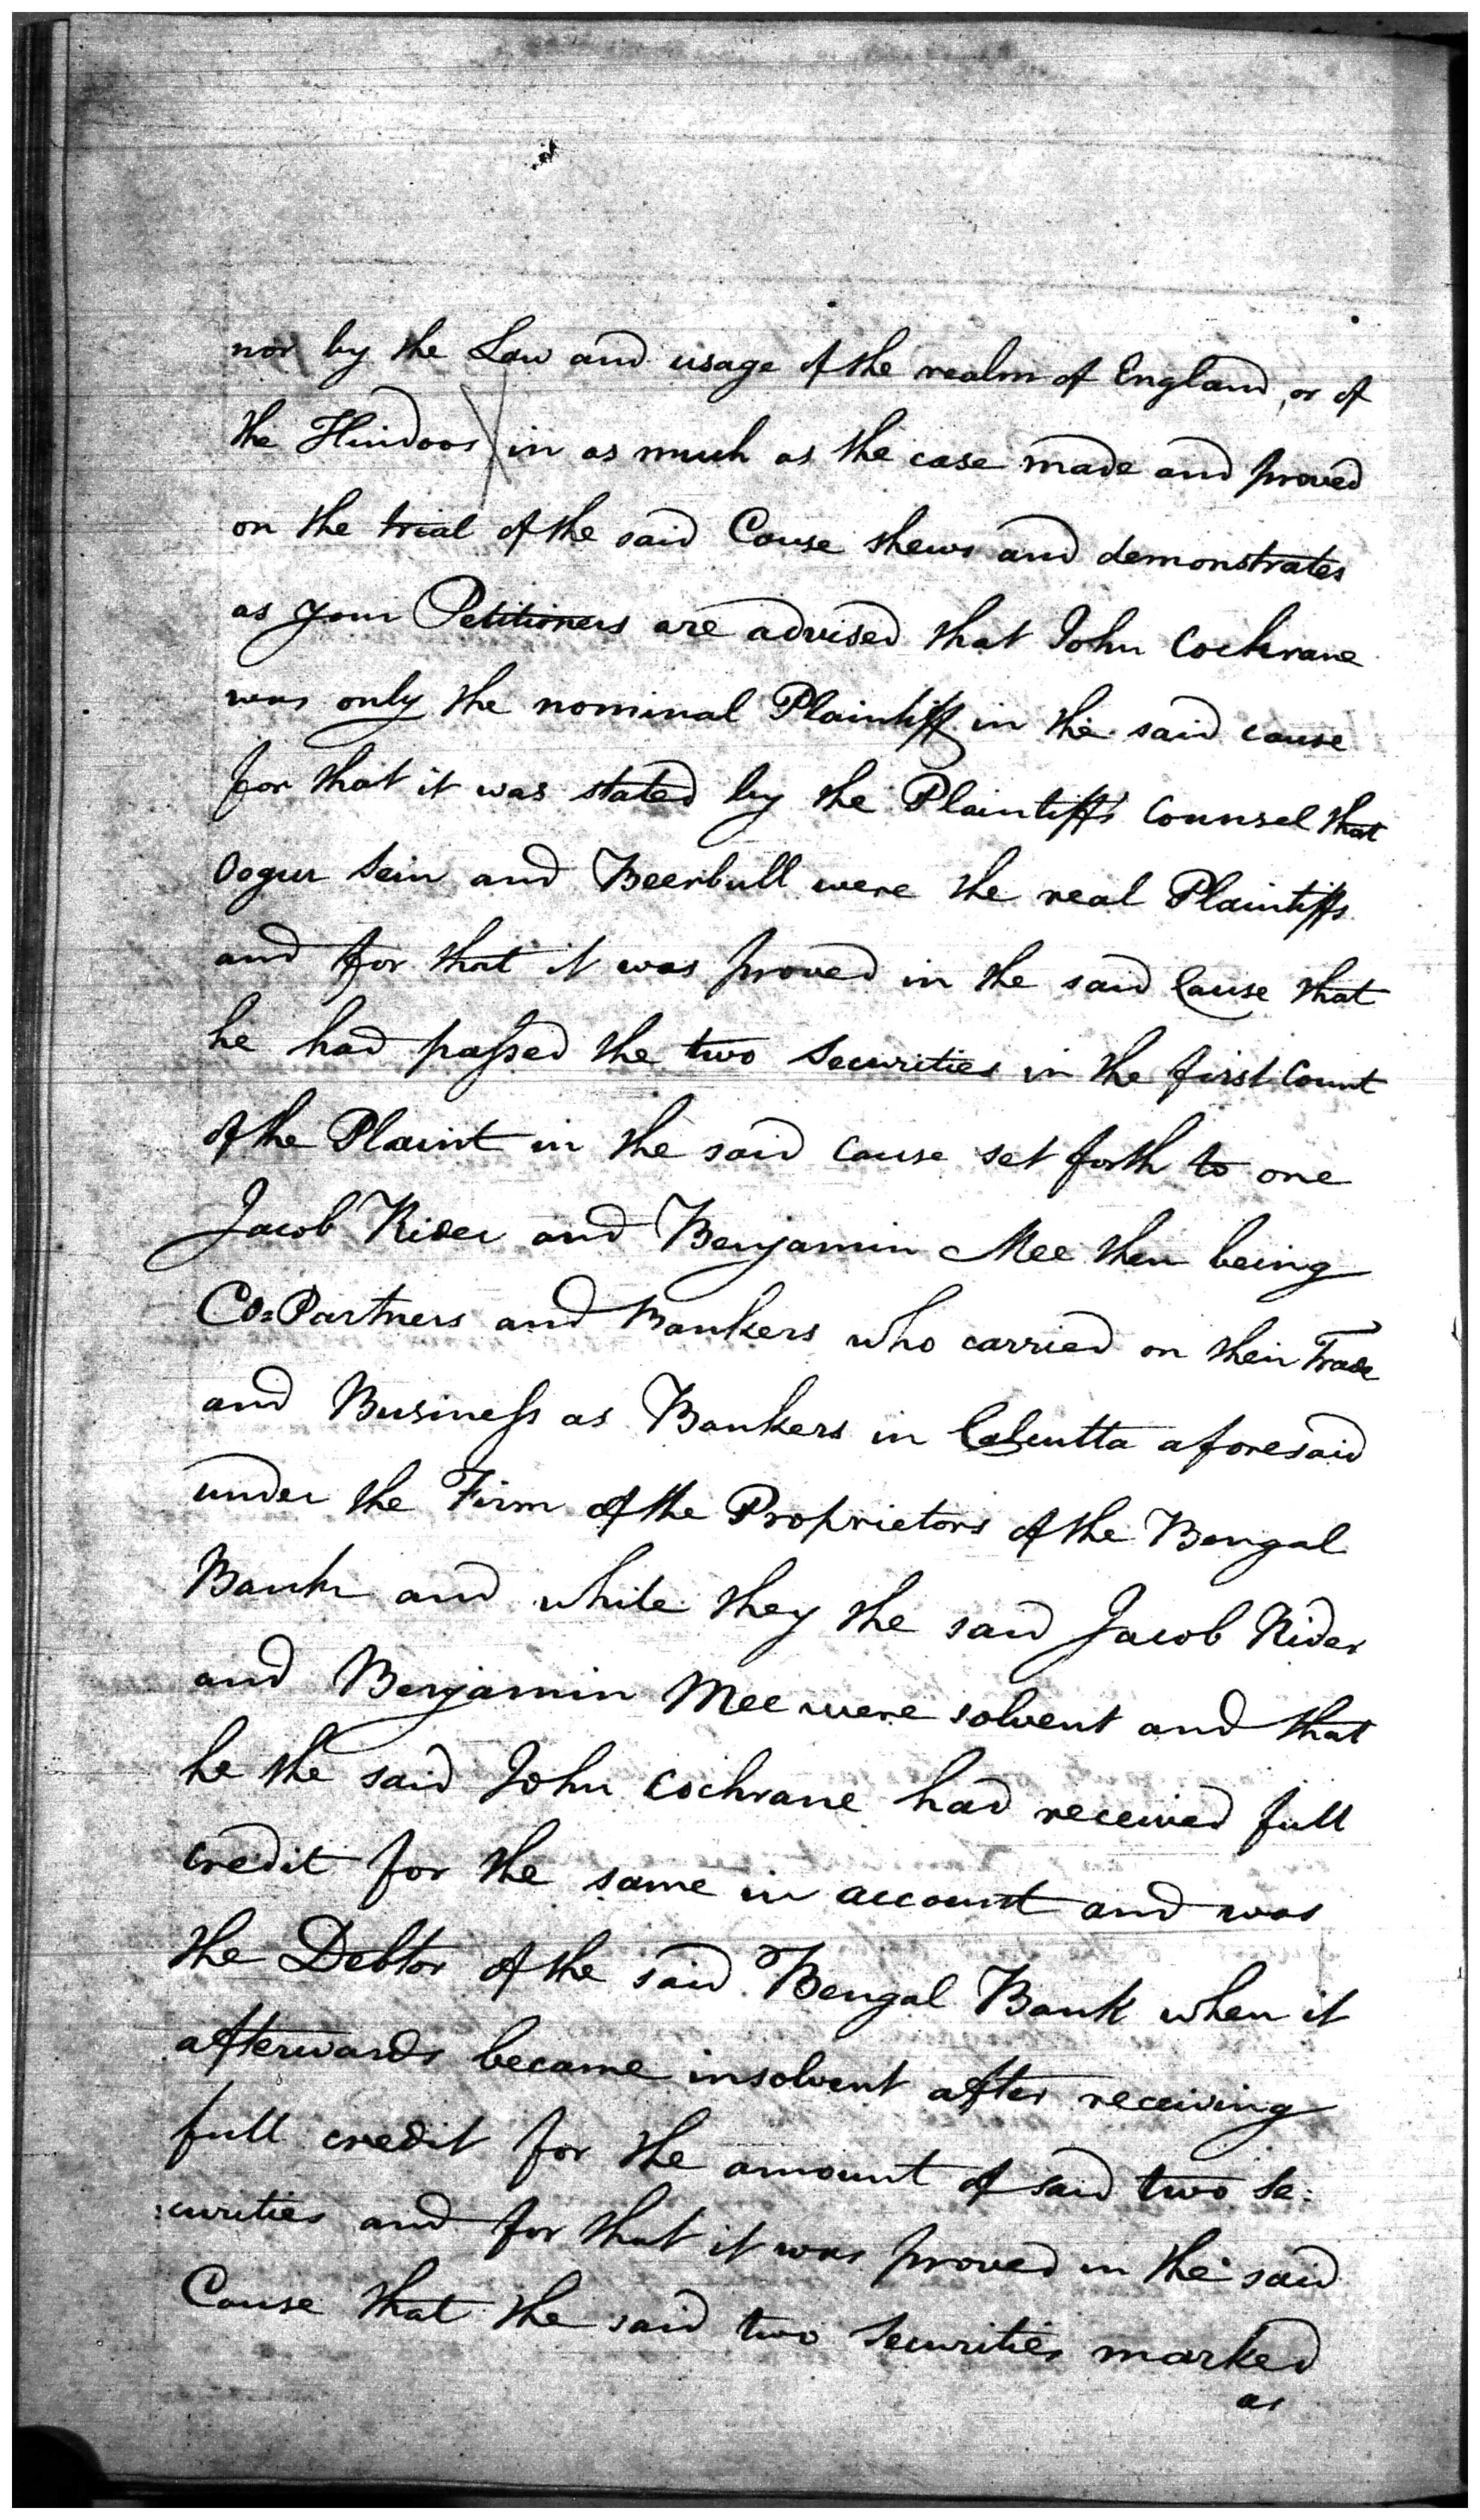 nor by the Law and usage of the realm of England, or of
the Hindoos in as much as the case made and proved
on the trial of the said Cause shews and demonstrates
as your Petitioners are advised that John Cochrane
was only the nominal Plaintiff in the said cause
for that it was stated by the Plaintiffs Counsel that
Oogur Sein and Beerbull were the real Plaintiffs
and for that it was proved in the said Cause that
he had paſsed the two Securities in the first Count
of the Plaint in the said Cause set forth to one
Jacob Rider and Benjamin Mee then being
Co=Partners and Bankers who carried on their Trade
and Busineſs as Bankers in Calcutta aforesaid
under the Firm of the Proprietors of the Bengal
Bank and while they the said Jacob Rider
and Benjamin Mee were solvent and that
he the said John Cochrane had received full
credit for the same in account and was
the Debtor of the said Bengal Bank when it
afterwards became insolvent after receiving
full credit for the amount of said two Se:
:curities and for that it was proved in the said
Cause that the said two Securities marked
as